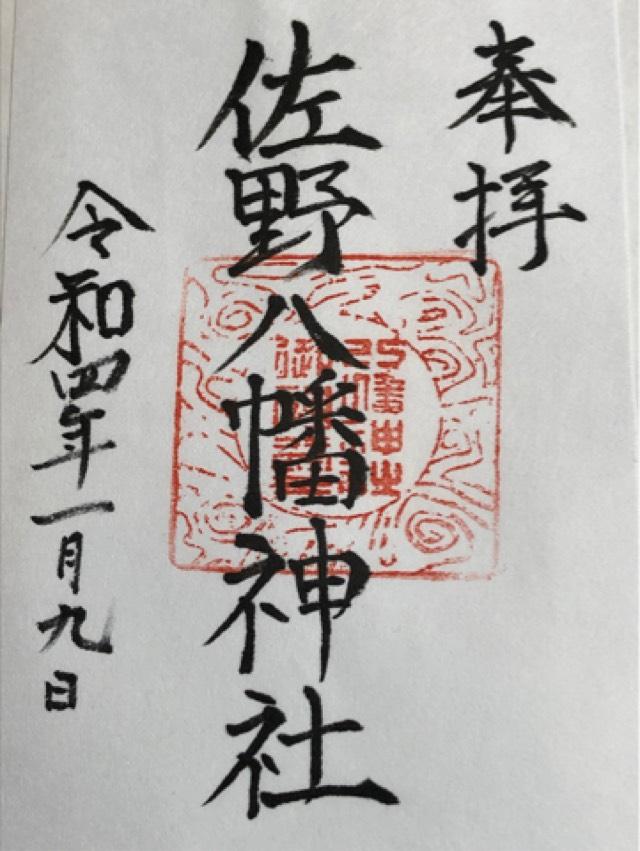 奉拝
佐野八幡神社
令和四年一月九日